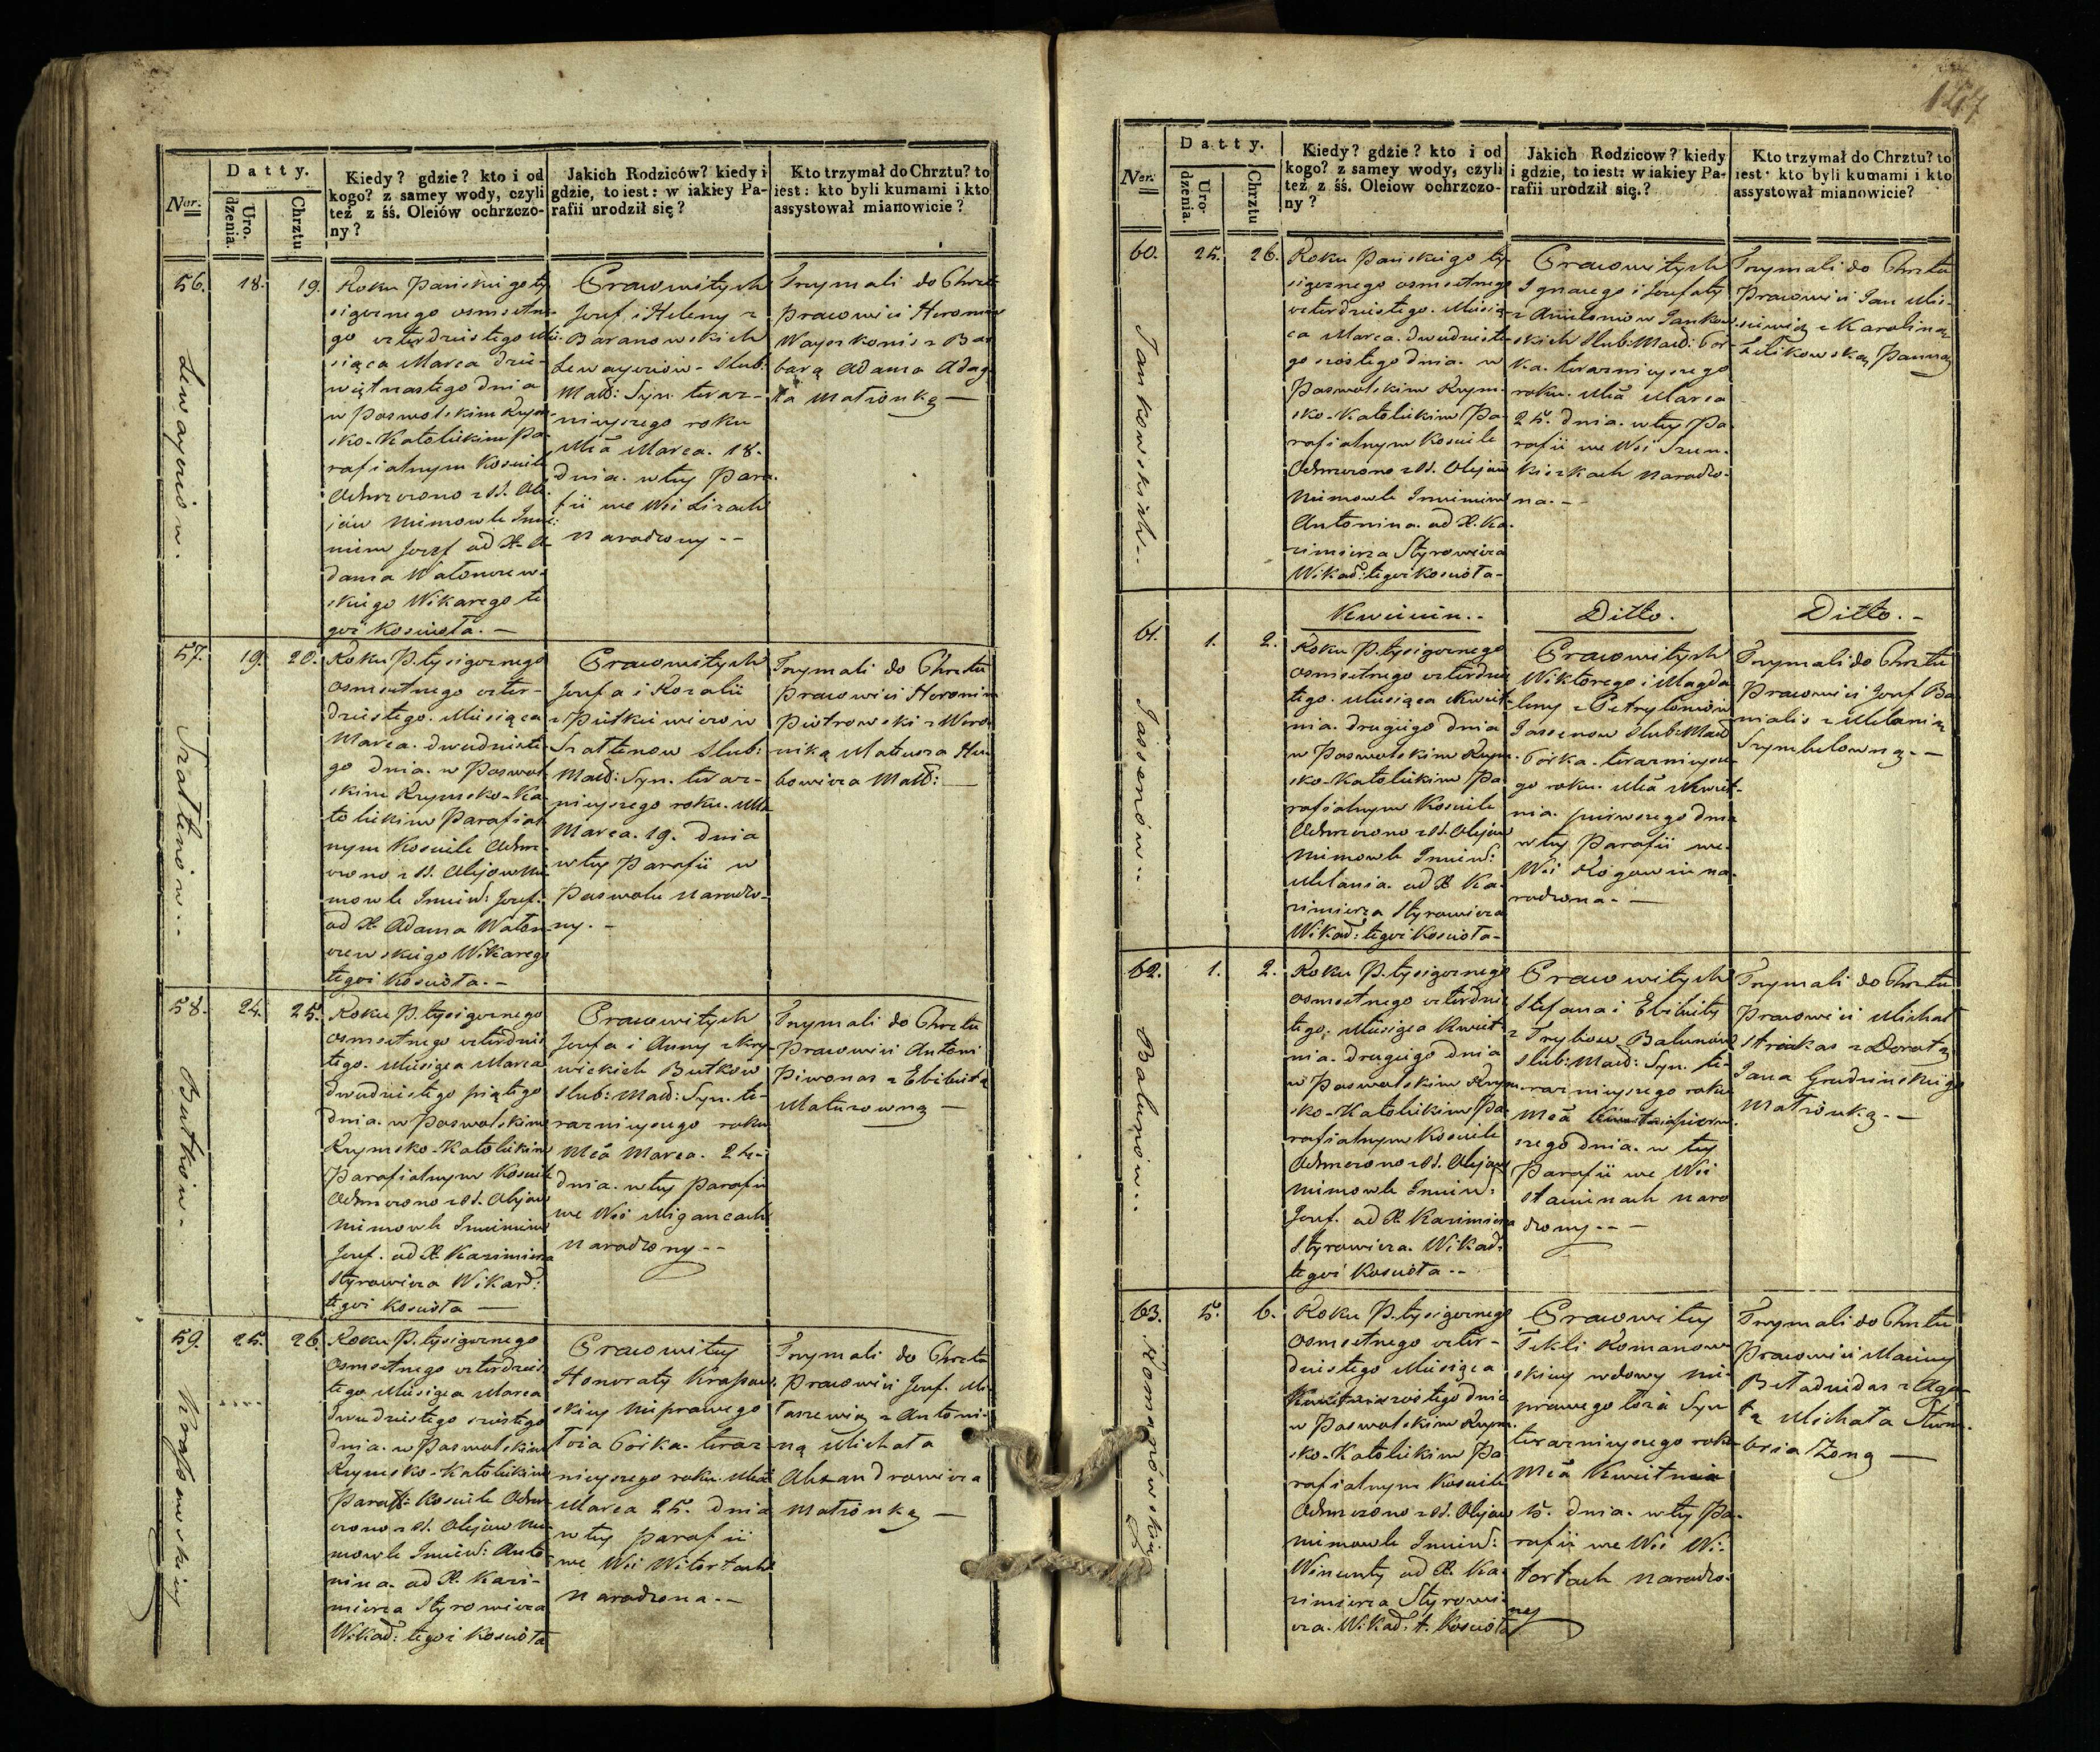 Datty.
Ner.
Uro-dzenia.
Chrztu
Kiedy? gdzie? kto i od
kogo? z samey wody, czyli
też z śś. Oleiów ochrzczo-
ny?
Jakich Rodziców? kiedy i
gdzie, to iest: w iakiey Pa-
rafii urodził się?
Kto trzymał do Chrztu? to
iest: kto byli kumami i kto
assystował mianowicie?
56.
18.
19.
Roku Pańskiego ty-
sięcznego osmsetne-
go czterdziestego Mie-
siąca Marca dzie-
więtnastego dnia
w Poswolskim Rzym-
sko-Katolickim Pa-
rafialnym Kosciele
Ochrzczono z SS. Ole-
jów Niemowle Imie-
niem Jozef od X. A-
dama
skiego Wikarego te-
goż Koscioła. —
Pracowitych
Jozefa i Heleny z
Baranowskich
Slub:
Małż: Syn. teraz-
nieyszego roku
Mca Marca. 18.
dnia. w tey Para-
fii we Wsi
narodzony --
Trzymali do Chrztu
Pracowici Heronim
z Bar-
barą Adama
Małżonką —
57.
19.
20.
Szattenow..
Roku P. tysięcznego
osmsetnego czter-
dziestego. Miesiąca
Marca. dwudzieste-
go dnia. w Poswol-
skim Rzymsko-Ka-
tolickim Parafial-
nym Kosciele Ochrz-
czono z SS. Olejow Nie-
mowle Imien: Jozef.
od X. Adama
Wikarego
tegoż Kosciola. -
Pracowitych
Jozefa i Rozalii
z Pietkiewiczow
Szattenow Slub:
Małż: Syn. teraz-
nieyszego roku. Mca
Marca. 19. dnia
w tey Parafii w
Poswolu narodzo-
ny. -
Trzymali do Chrztu
Pracowici Heronim
Piotrowski z Wero-
niką Mateusza
Małż: —
58.
24.
25.
Butkow-
Roku P. tysięcznego
osmsetnego czterdzies-
tego. Miesiąca Marca
dwudziestego piątego
dnia. w Poswolskim
Rzymsko-Katolickim
Parafialnym Kosciele
Ochrzczono z SS. Olejow
Niemowle Imieniem
Jozef. od X. Kazimierza
Styrowicza Wikar:
tegoż Kosciola —
Pracowitych
Jozefa i Anny z Kry-
wickich Butkow
Slub: Małż: Syn. te-
raznieyszego roku
Mca Marca. 24.
dnia. w tey Parafii
we Wsi Migancach
narodzony --
Trzymali do Chrztu
Pracowici Antoni
Piwonas z Elzbietą
Maturowną —
59.
25.
26.
Krassowskiey
Roku P. tysięcznego
osmsetnego czterdzies-
tego Miesiąca Marca
dwudziestego szostego
dnia. w Poswolskim
Rzymsko-Katolickim
Paraf: Kosciele Ochrz-
czono z SS. Olejow Nie-
mowle Imien: Anto-
nina. od X. Kazi-
mierza Styrowicza
Wikar: tegoż Kosciola
Pracowitey
Honoraty Krassow-
skiey nieprawego
łoża Corka. teraz-
nieyszego roku Mca
Marca 25. dnia
w tey Parafii
we Wsi Witortach
narodzona. --
Trzymali do Chrztu
Pracowici Jozef
z Antoni-
ną Michała
Małżonką —
Datty.
Ner.
Uro-dzenia.
Chrztu
Kiedy? gdzie? kto i od
kogo? z samey wody, czyli
też z śś. Oleiow ochrzczo-
ny?
Jakich Rodzicow? kiedy
i gdzie, to iest: w iakiey Pa-
rafii urodził się.?
Kto trzymał do Chrztu? to
iest: kto byli kumami i kto
assystował mianowicie?
60.
25.
26.
Jankowskich..
Roku Pańskiego ty-
sięcznego osmsetnego
czterdziestego. Miesią-
ca Marca. dwudzieste-
go szostego dnia. w
Poswolskim Rzym-
sko-Katolickim Pa-
rafialnym Kosciele
Ochrzczono z SS. Olejow
Niemowle Imieniem
Antonina. od X. Ka-
zimierza Styrowicza
Wikar: tegoż Kosciola-
Pracowitych
Ignacego i Jozefaty
z Jankow-
skich Slub: Małż: Cor-
ka. teraznieyszego
roku. Mca Marca
25. dnia. w tey Pa-
rafii we Wsi
narodzo-
na. -
Trzymali do Chrztu
Pracowici Jan
z Karoliną
Panną
Kwiecien..
Ditto.
Ditto. -
61.
1.
2.
Jasenow..
Roku P. tysięcznego
osmsetnego czterdzies-
tego. Miesiąca Kwiet-
nia. drugiego dnia
w Poswolskim Rzym-
sko-Katolickim Pa-
rafialnym Kosciele
Ochrzczono z SS. Olejow
Niemowle Imien:
Melania. od X. Ka-
zimierza Styrowicza
Wikar: tegoż Kosciola-
Pracowitych
Wiktorego i Magda-
leny z
Jassenow Slub: Małż
Corka. teraznieysze-
go roku. Mca Kwiet-
nia. pierwszego dnia
w tey Parafii we
Wsi na-
rodzona. -
Trzymali do Chrztu
Pracowici Jozef
z Melanią
Szymbelowną. —
62.
1.
2.
Balunow..
Roku P. tysięcznego
osmsetnego czterdzies-
tego. Miesiąca Kwiet-
nia. drugiego dnia
w Poswolskim Rzym-
sko-Katolickim Pa-
rafialnym Kosciele
Ochrzczono z SS. Olejow
Niemowle Imien:
Jozef. od X. Kazimierza
Styrowicza. Wikar:
tegoż Kosciola --
Pracowitych
Stefana i Elzbiety
z Trybow Balunow
Slub: Małż: Syn. te-
raznieyszego roku
Mca Kwietnia pierw-
szego dnia. w tey
Parafii we Wsi
naro-
dzony. --
Trzymali do Chrztu
Pracowici Michał
z Dorotą
Jana Grudzinskiego
Małżonką. —
63.
5.
6.
Romanowskiey
Roku P. tysięcznego
osmsetnego czter-
dziestego Miesiąca
Kwietnia szostego dnia
w Poswolskim Rzym-
sko-Katolickim Pa-
rafialnym Kosciele
Ochrzczono z SS. Olejow
Niemowle Imien:
Wincenty od X. Ka-
zimierza Styrowi-
cza. Wikar: t. Kosciola
Pracowitey
Tekli Romanow-
skiey wdowy nie-
prawego łoża Syn
teraznieyszego roku
Mca Kwietnia
5. dnia. w tey Pa-
rafii we Wsi Wi-
tortach narodzo-
ny
Trzymali do Chrztu
Pracowici Maciey
z Aga-
tą Michała
Zoną —